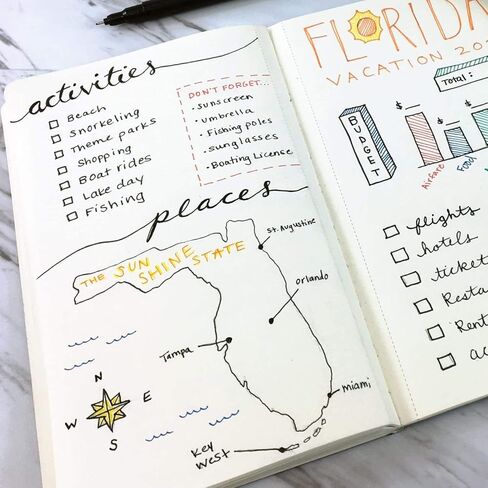 activities
Beach
Snorkeling
Theme parks
Shopping
Boat rides
Lake day
Fishing
DON'T FORGET...
• Sunscreen
• Umbrella
• Fishing poles
• Sunglasses
• Boating License
places
THE SUN
SHINE STATE
St. Augustine
Orlando
Tampa
Miami
Key
West
N
W E
S
FLORIDA
VACATION
Total:
BUDGET
$
$
Airfare
Food
flights
hotels